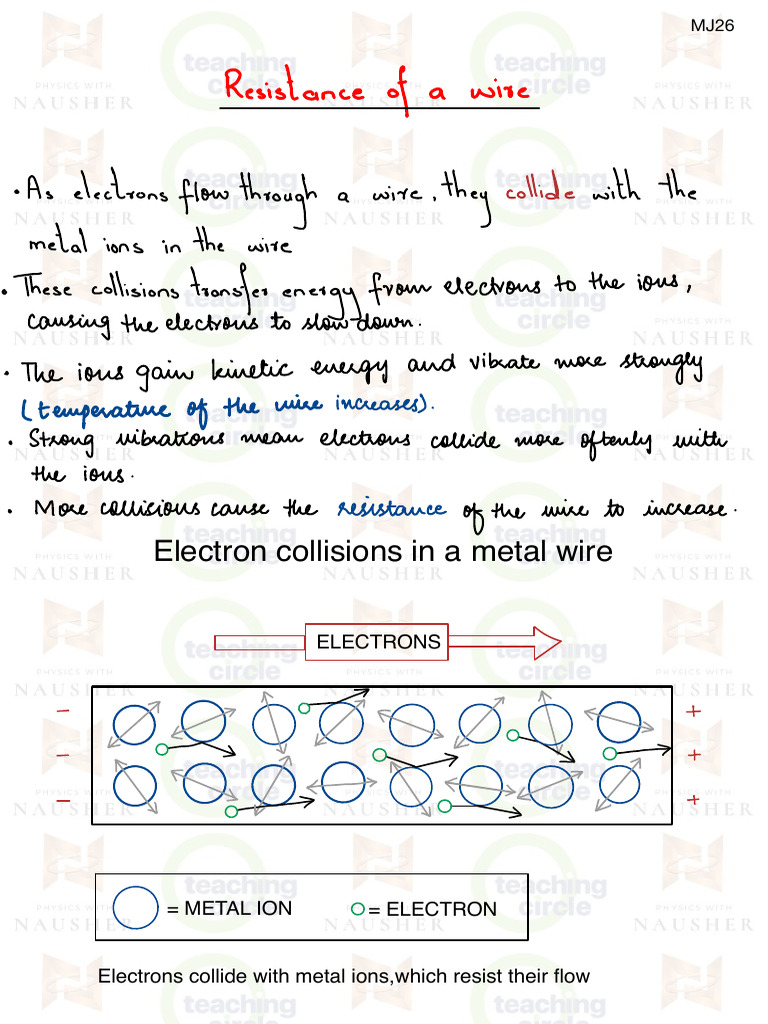 MJ26
Resistance of a wire
• As electrons flow through a wire, they collide with the
metal ions in the wire
• These collisions transfer energy from electrons to the ions,
causing the electrons to slow down.
• The ions gain kinetic energy and vibrate more strongly
(temperature of the wire increases).
• Strong vibrations mean electrons collide more oftenly with
the ions.
• More collisions cause the resistance of the wire to increase.
Electron collisions in a metal wire
ELECTRONS
− +
− +
− +
= METAL ION = ELECTRON
Electrons collide with metal ions,which resist their flow
teaching circle
PHYSICS WITH
NAUSHER